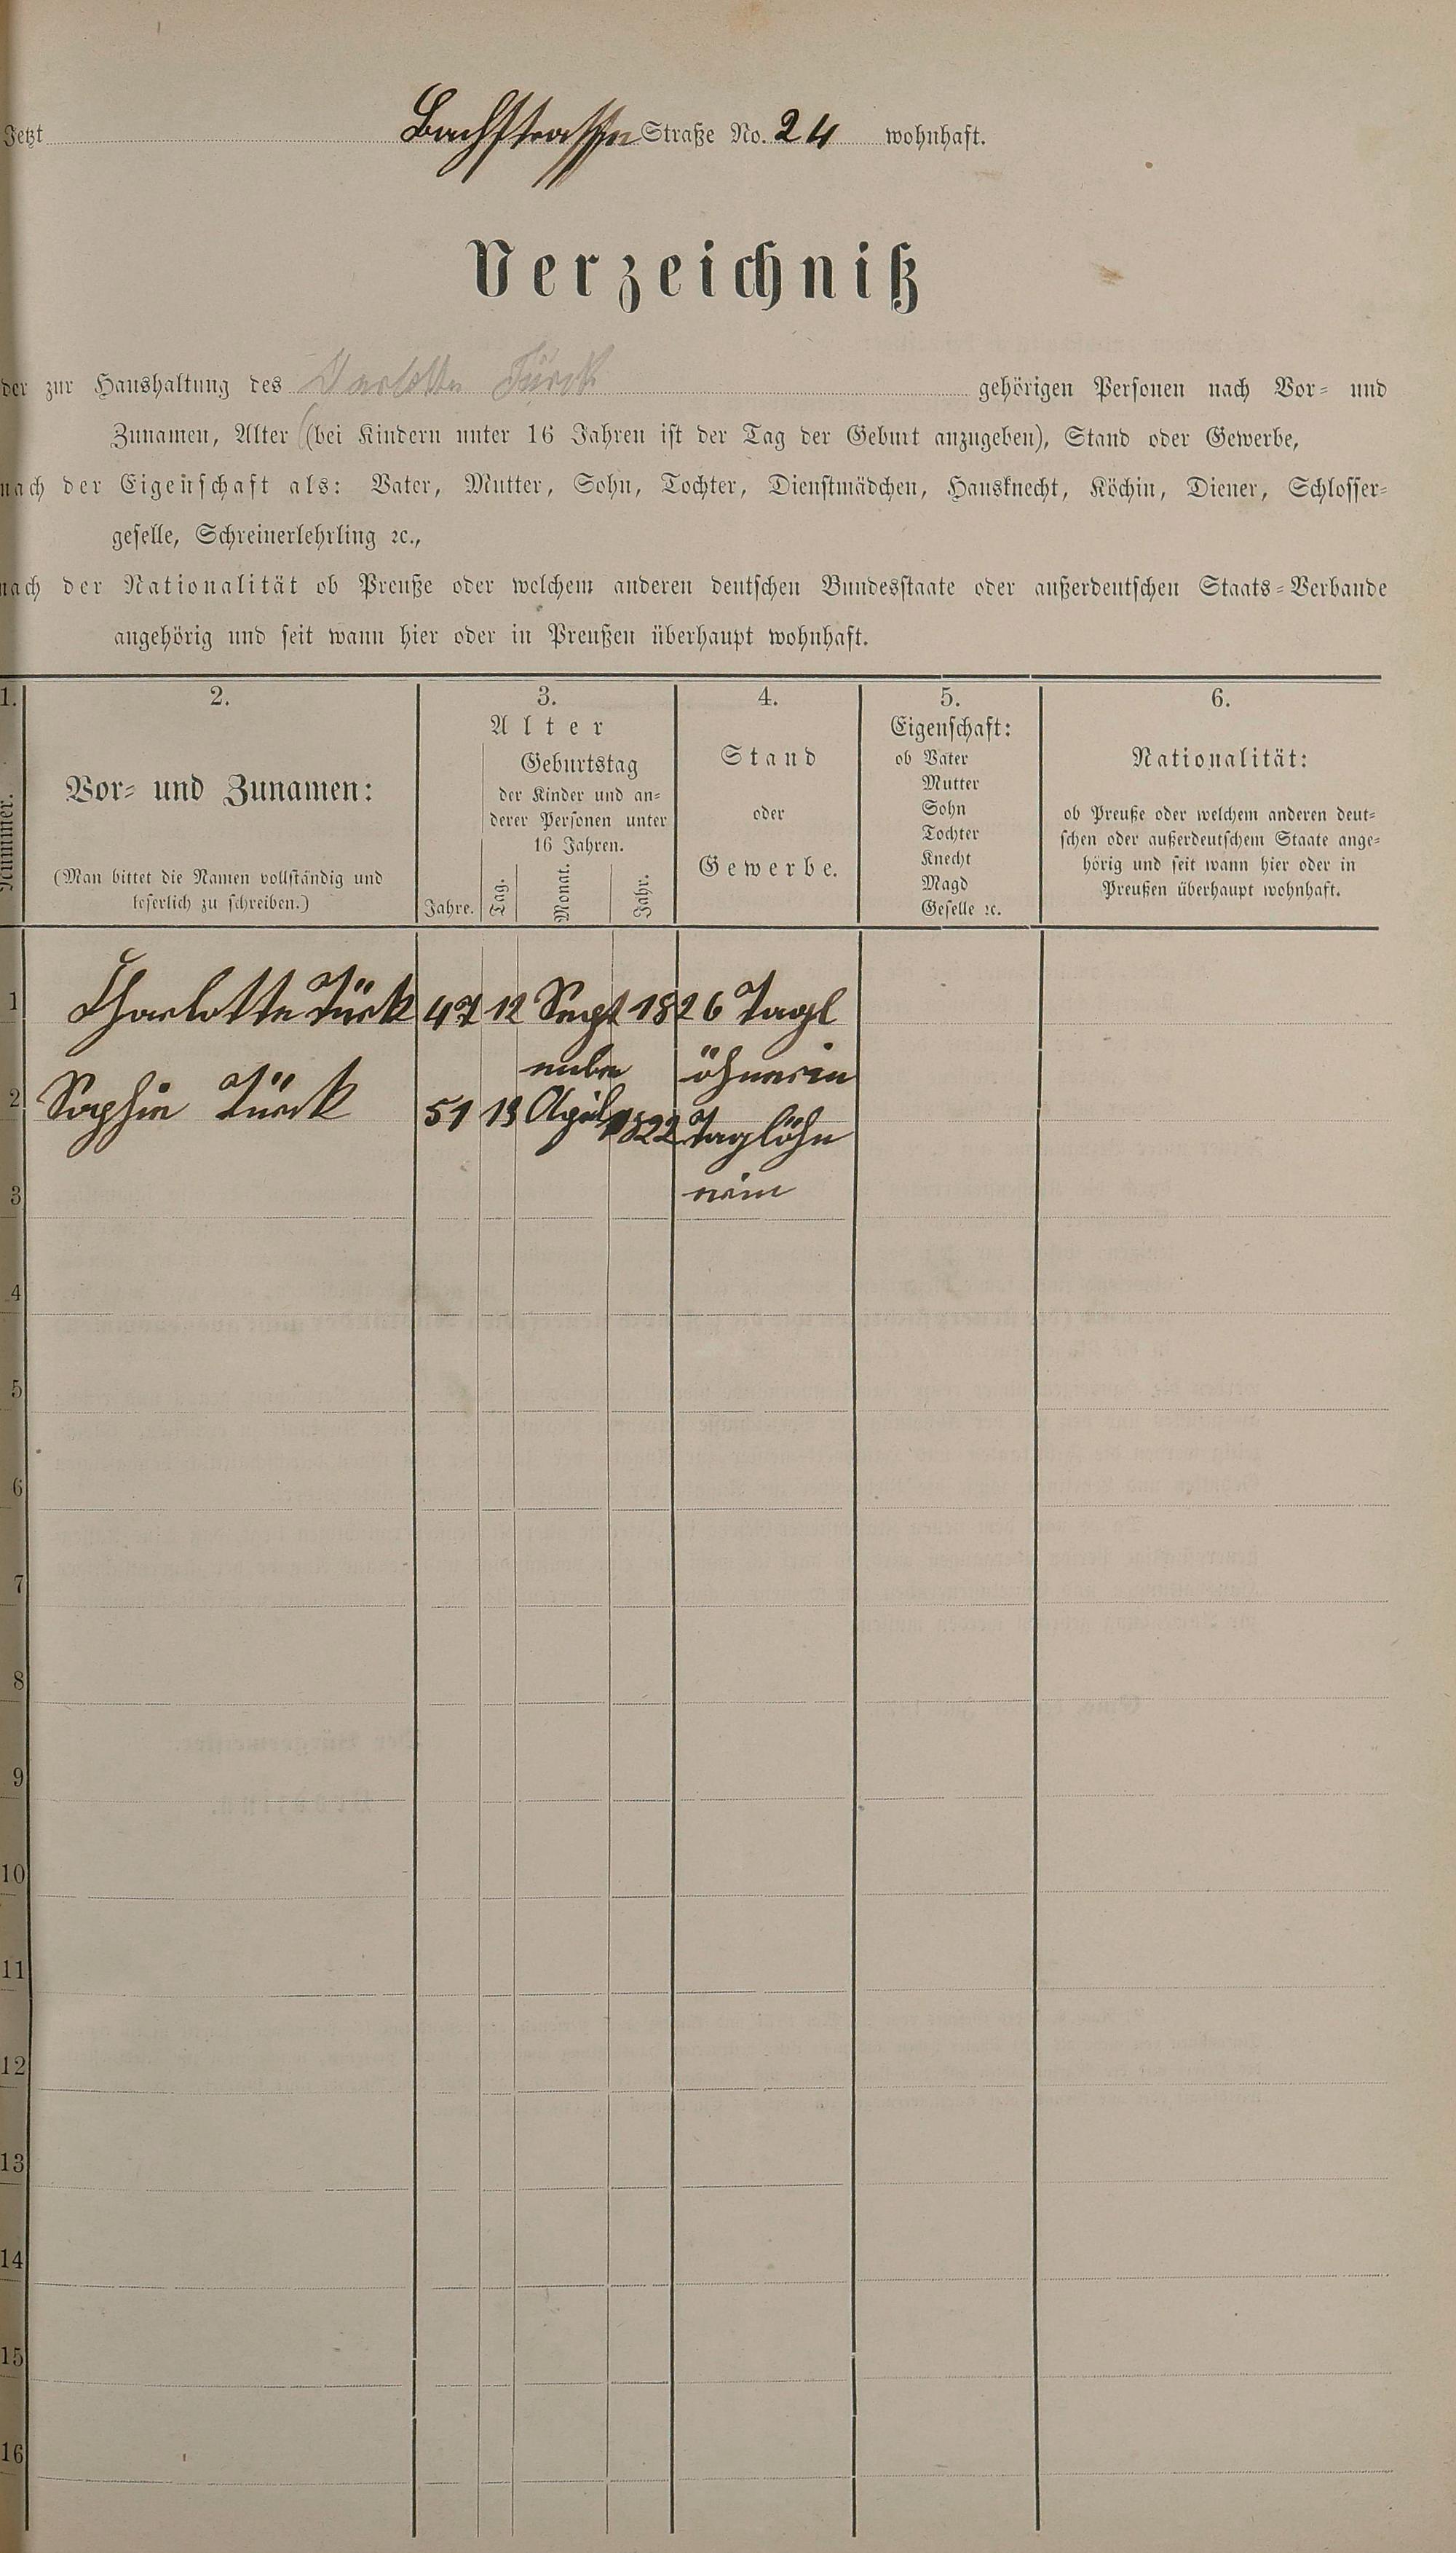 Jetzt Bachstrasse Straße No. 24 wohnhaft.
Verzeichniß
der zur Haushaltung des Charlotte Türk gehörigen Personen nach Vor- und
Zunamen, Alter (bei Kindern unter 16 Jahren ist der Tag der Geburt anzugeben), Stand oder Gewerbe,
nach der Eigenschaft als: Vater, Mutter, Sohn, Tochter, Dienstmädchen, Hausknecht, Köchin, Diener, Schlosser-
geselle, Schreinerlehrling ꝛc.,
nach der Nationalität ob Preuße oder welchem anderen deutschen Bundesstaate oder außerdeutschen Staats-Verbande
angehörig und seit wann hier oder in Preußen überhaupt wohnhaft.
1. 2. 3. 4. 5. 6.
Nummer.
Vor- und Zunamen:
(Man bittet die Namen vollständig und
leserlich zu schreiben.)
Alter
Jahre.
Geburtstag
der Kinder und an-
derer Personen unter
16 Jahren.
Tag. Monat. Jahr.
Stand
oder
Gewerbe.
Eigenschaft:
ob Vater
Mutter
Sohn
Tochter
Knecht
Magd
Geselle ꝛc.
Nationalität:
ob Preuße oder welchem anderen deut-
schen oder außerdeutschem Staate ange-
hörig und seit wann hier oder in
Preußen überhaupt wohnhaft.
1 Charlotte Türk 47 12 Sept 1826 Tagl
ember öhnerin
2 Sophie Türk 51 13 April 1822 Taglöhn
erin
3
4
5
6
7
8
9
10
11
12
13
14
15
16